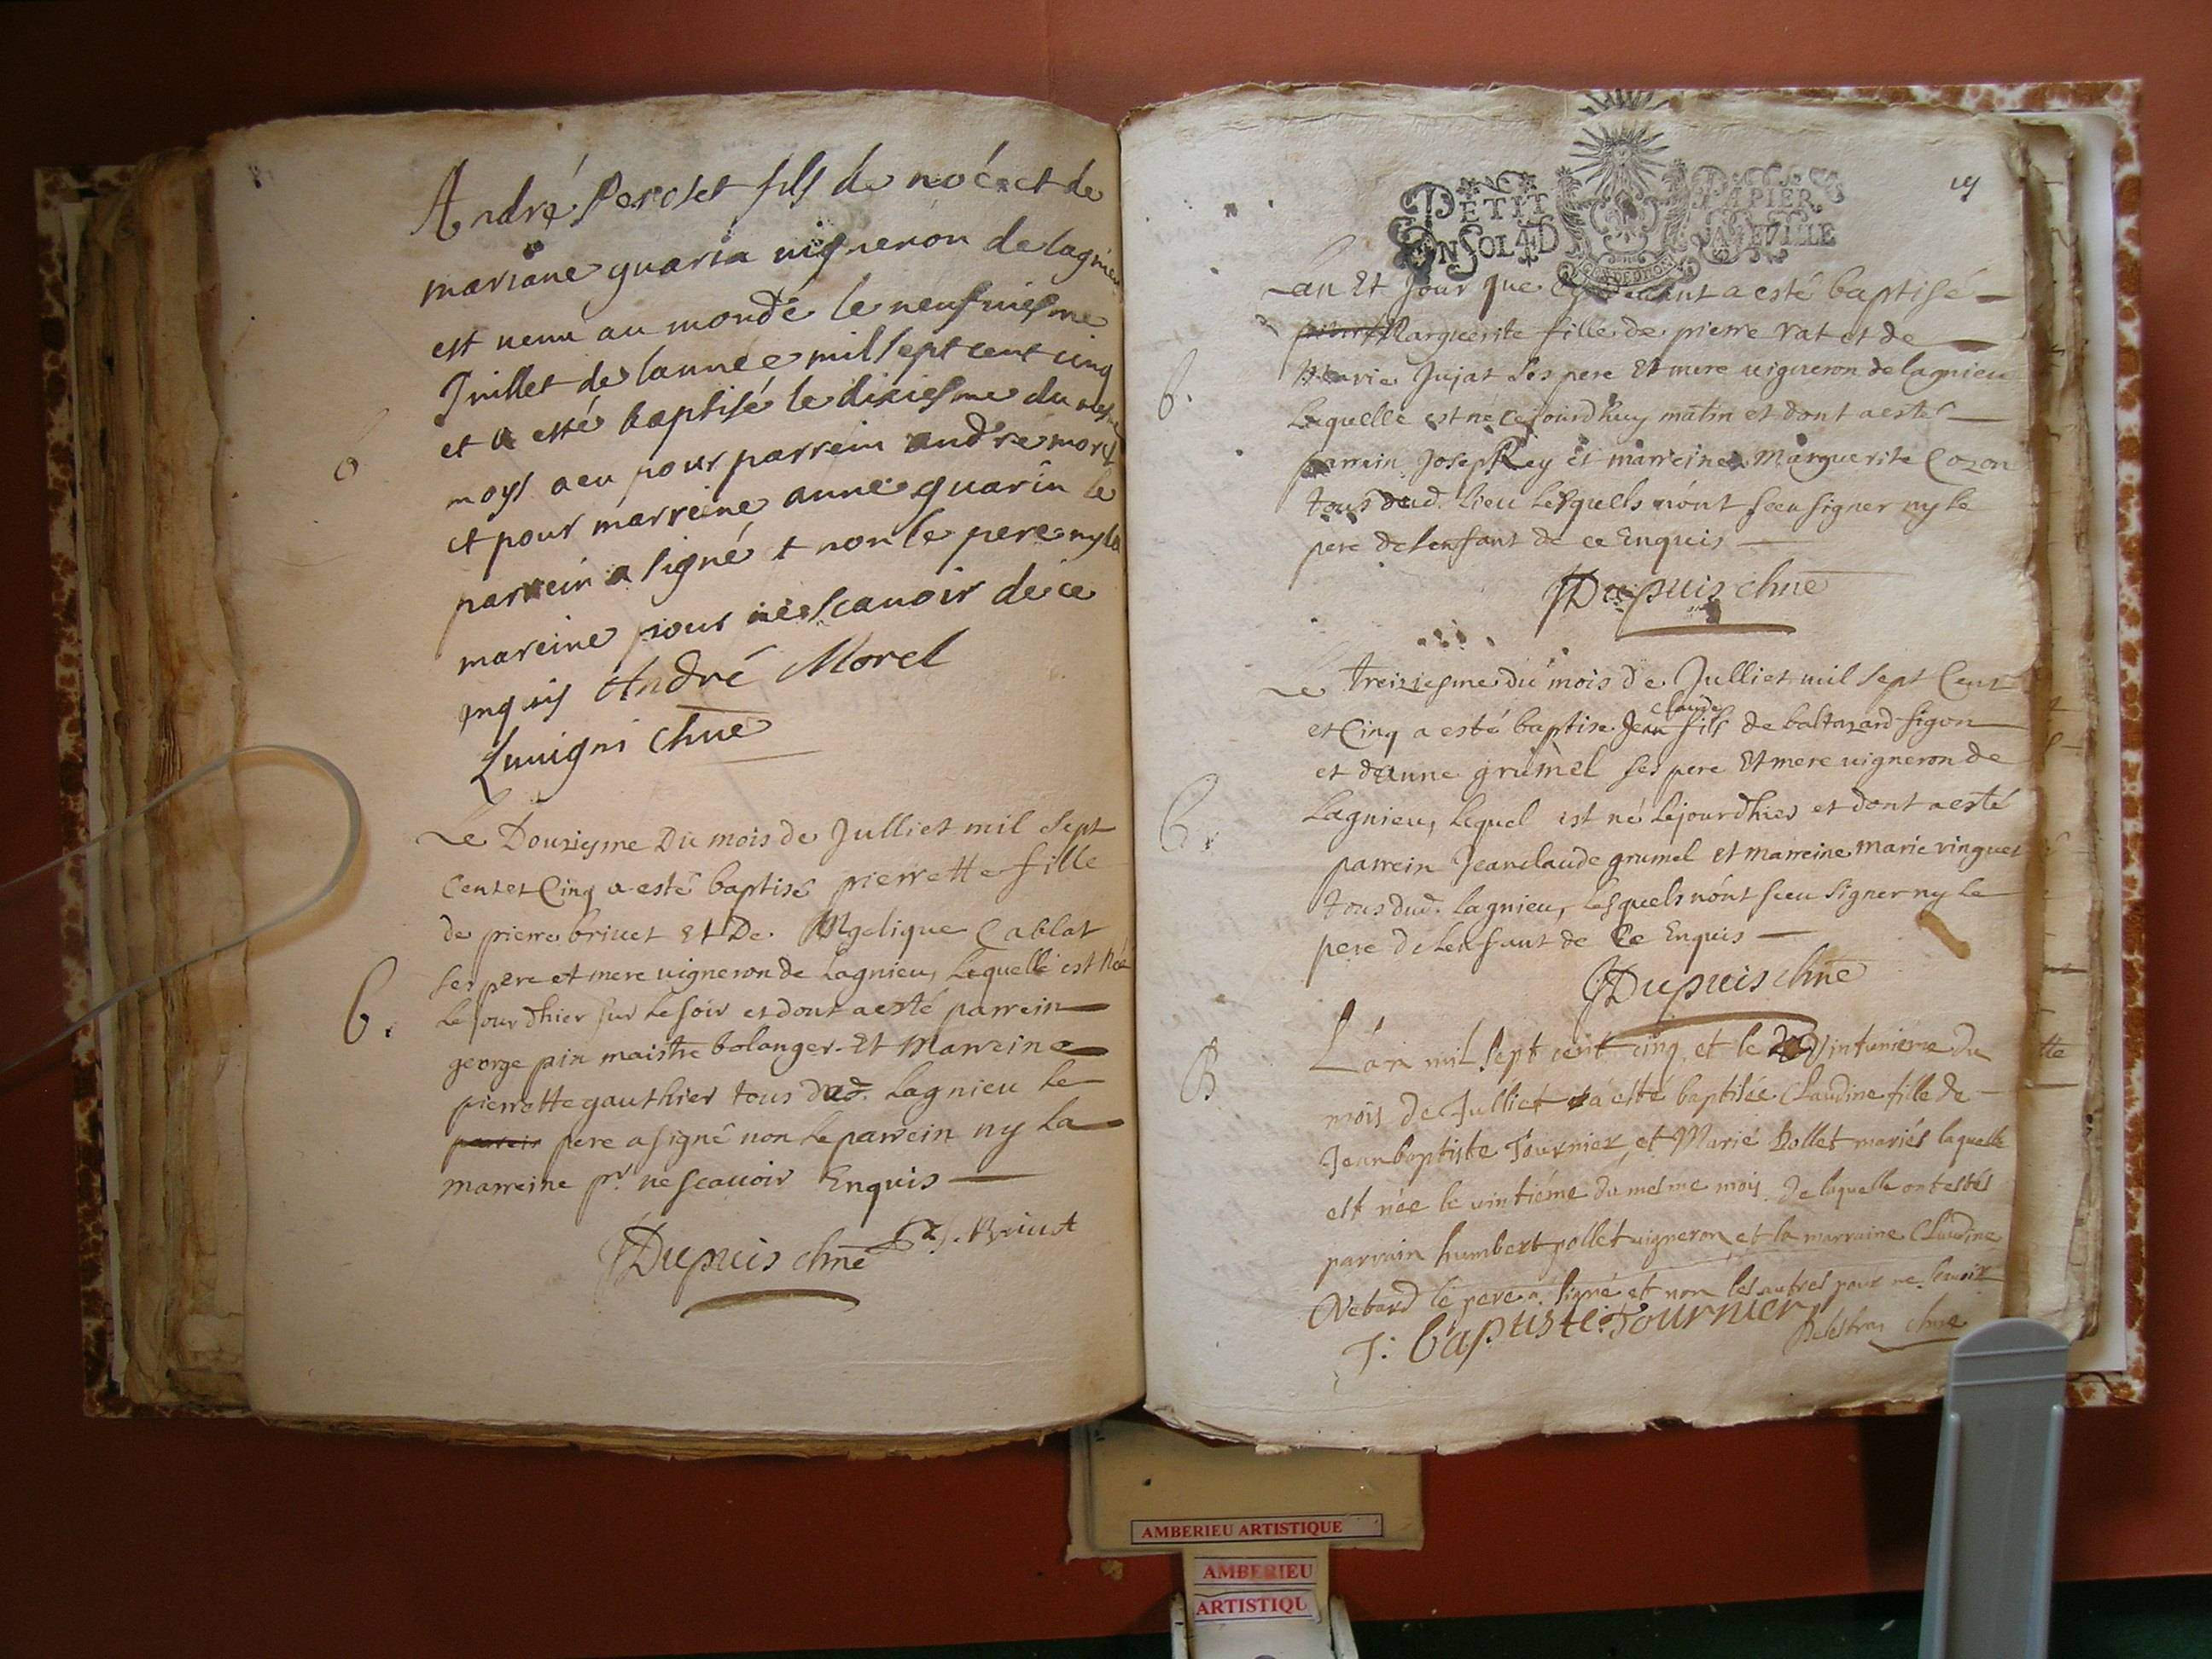 André Peroset fils de noé et de
mariane guarin uigneron de lagnieu
est uenu au monde le neufuiesme
Juillet de lannee mil sept cent cinq
et a esté baptisé le dixiesme du mesme
moys a eu pour parrein andre morel
et pour marreine anne guarin le
parrein a signé et non le pere ny la
mareine pour ne scauoir de ce
inquis André Morel
chne
Le Douziesme Du mois de Julliet mil sept
Cent et Cinq a esté baptisé pierrette fille
de pierre briuet Et De Angelique Cablat
ses pere et mere uigneron de Lagnieu, Laquelle est Née
Le jour dhier sur Le soir et dont a esté parrein
george pin maistre bolanger. Et Marreine
pierrette gauthier tous dud. Lagnieu le
parrein pere a signé non Le parrein ny La
marreine pr. ne scauoir Enquis
Dupuis chne Briuet
B.
PETIT PAPIER
4 D LA FEVILLE
19
Lan Et Jour que Cy deuant a esté baptisé
Marguerite fille de pierre rat et de
Marie Jujat Ses pere Et mere uigneron de Lagnieu
Laquelle est né ce jourdhuy matin et dont a esté
parrein Josep Rey et marreine Marguerite Cozon
tous dud. lieu Lesquels nónt sceu signer ny le
pere de lenfant de ce Enquis
Dupuis chne
B.
Le treiziesme du mois de Julliet mil sept Cent
et Cinq a esté baptise Jean claude fils de baltazard figon
et danne grumel ses pere Et mere uigneron de
Lagnieu, Lequel est né Lejourdhier et dont a esté
parrein Jeanclaude grumel et marreine marie vinguet
tous dud. Lagnieu, Lesquels nónt sceu signer ny Le
pere de Lenfant de Ce Enquis
Dupuis chne
B.
L'an mil sept cent cinq et le vintunieme du
mois de Julliet a esté baptisée Claudine fille de
Jean baptiste Fournier et Marie Pollet mariés laquelle
est née le vintiéme du mesme mois. de laquelle ont estés
parrain humbert pollet uigneron et la marraine Claudine
le pere a signé et non les autres pour ne scauoir
J: baptiste Fournier
chne
B
AMBERIEU ARTISTIQUE
AMBERIEU
ARTISTIQU